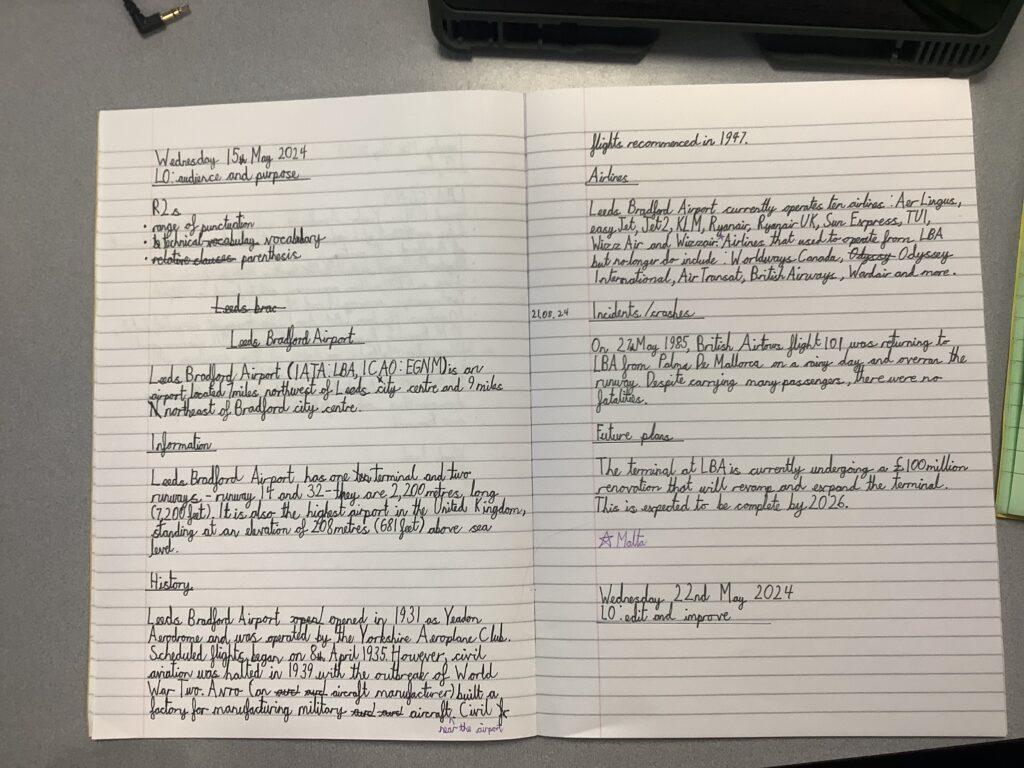 Wednesday 15th May 2024
LO: audience and purpose
R2s
• range of punctuation
• technical vocabulay vocabulary
• relative clauses parenthesis
Leeds brac
Leeds Bradford Airport
Leeds Bradford Airport (IATA: LBA, ICAO: EGNM) is an
airport located 7miles northwest of Leeds city centre and 9 miles
N northeast of Bradford city centre.
Information
Leeds Bradford Airport has one terminal and two
runways - runway 14 and 32 - they are 2,200 metres long
(7,200 feet). It is also the highest airport in the United Kingdom,
standing at an elevation of 208 metres (681 feet) above sea
level.
History
Leeds Bradford Airport opened in 1931 as Yeadon
Aerodrome and was operated by the Yorkshire Aeroplane Club.
Scheduled flights began on 8th April 1935. However, civil
aviation was halted in 1939 with the outbreak of World
War Two. Avro (an aircraft manufacturer) built a
factory for manufacturing military aircraft. Civil
near the airport
flights recommenced in 1947.
Airlines
Leeds Bradford Airport currently operates ten airlines: Aer Lingus,
easyJet, Jet2, KLM, Ryanair, Ryanair UK, Sun Express, TUI,
Wizz Air and Wizzair. Airlines that used to operate from LBA
but no longer do include: Worldways Canada, Odyssy Odyssey
International, Air Transat, British Airways, Wardair and more.
21.05.24
Incidents/crashes
On 27th May 1985, British Airtours flight 101 was returning to
LBA from Palma De Mallorca on a rainy day and overran the
runway. Despite carrying many passengers, there were no
fatalities.
Future plans
The terminal at LBA is currently undergoing a £100million
renovation that will revamp and expand the terminal.
This is expected to be complete by 2026.
☆ Malta
Wednesday 22nd May 2024
LO: edit and improve